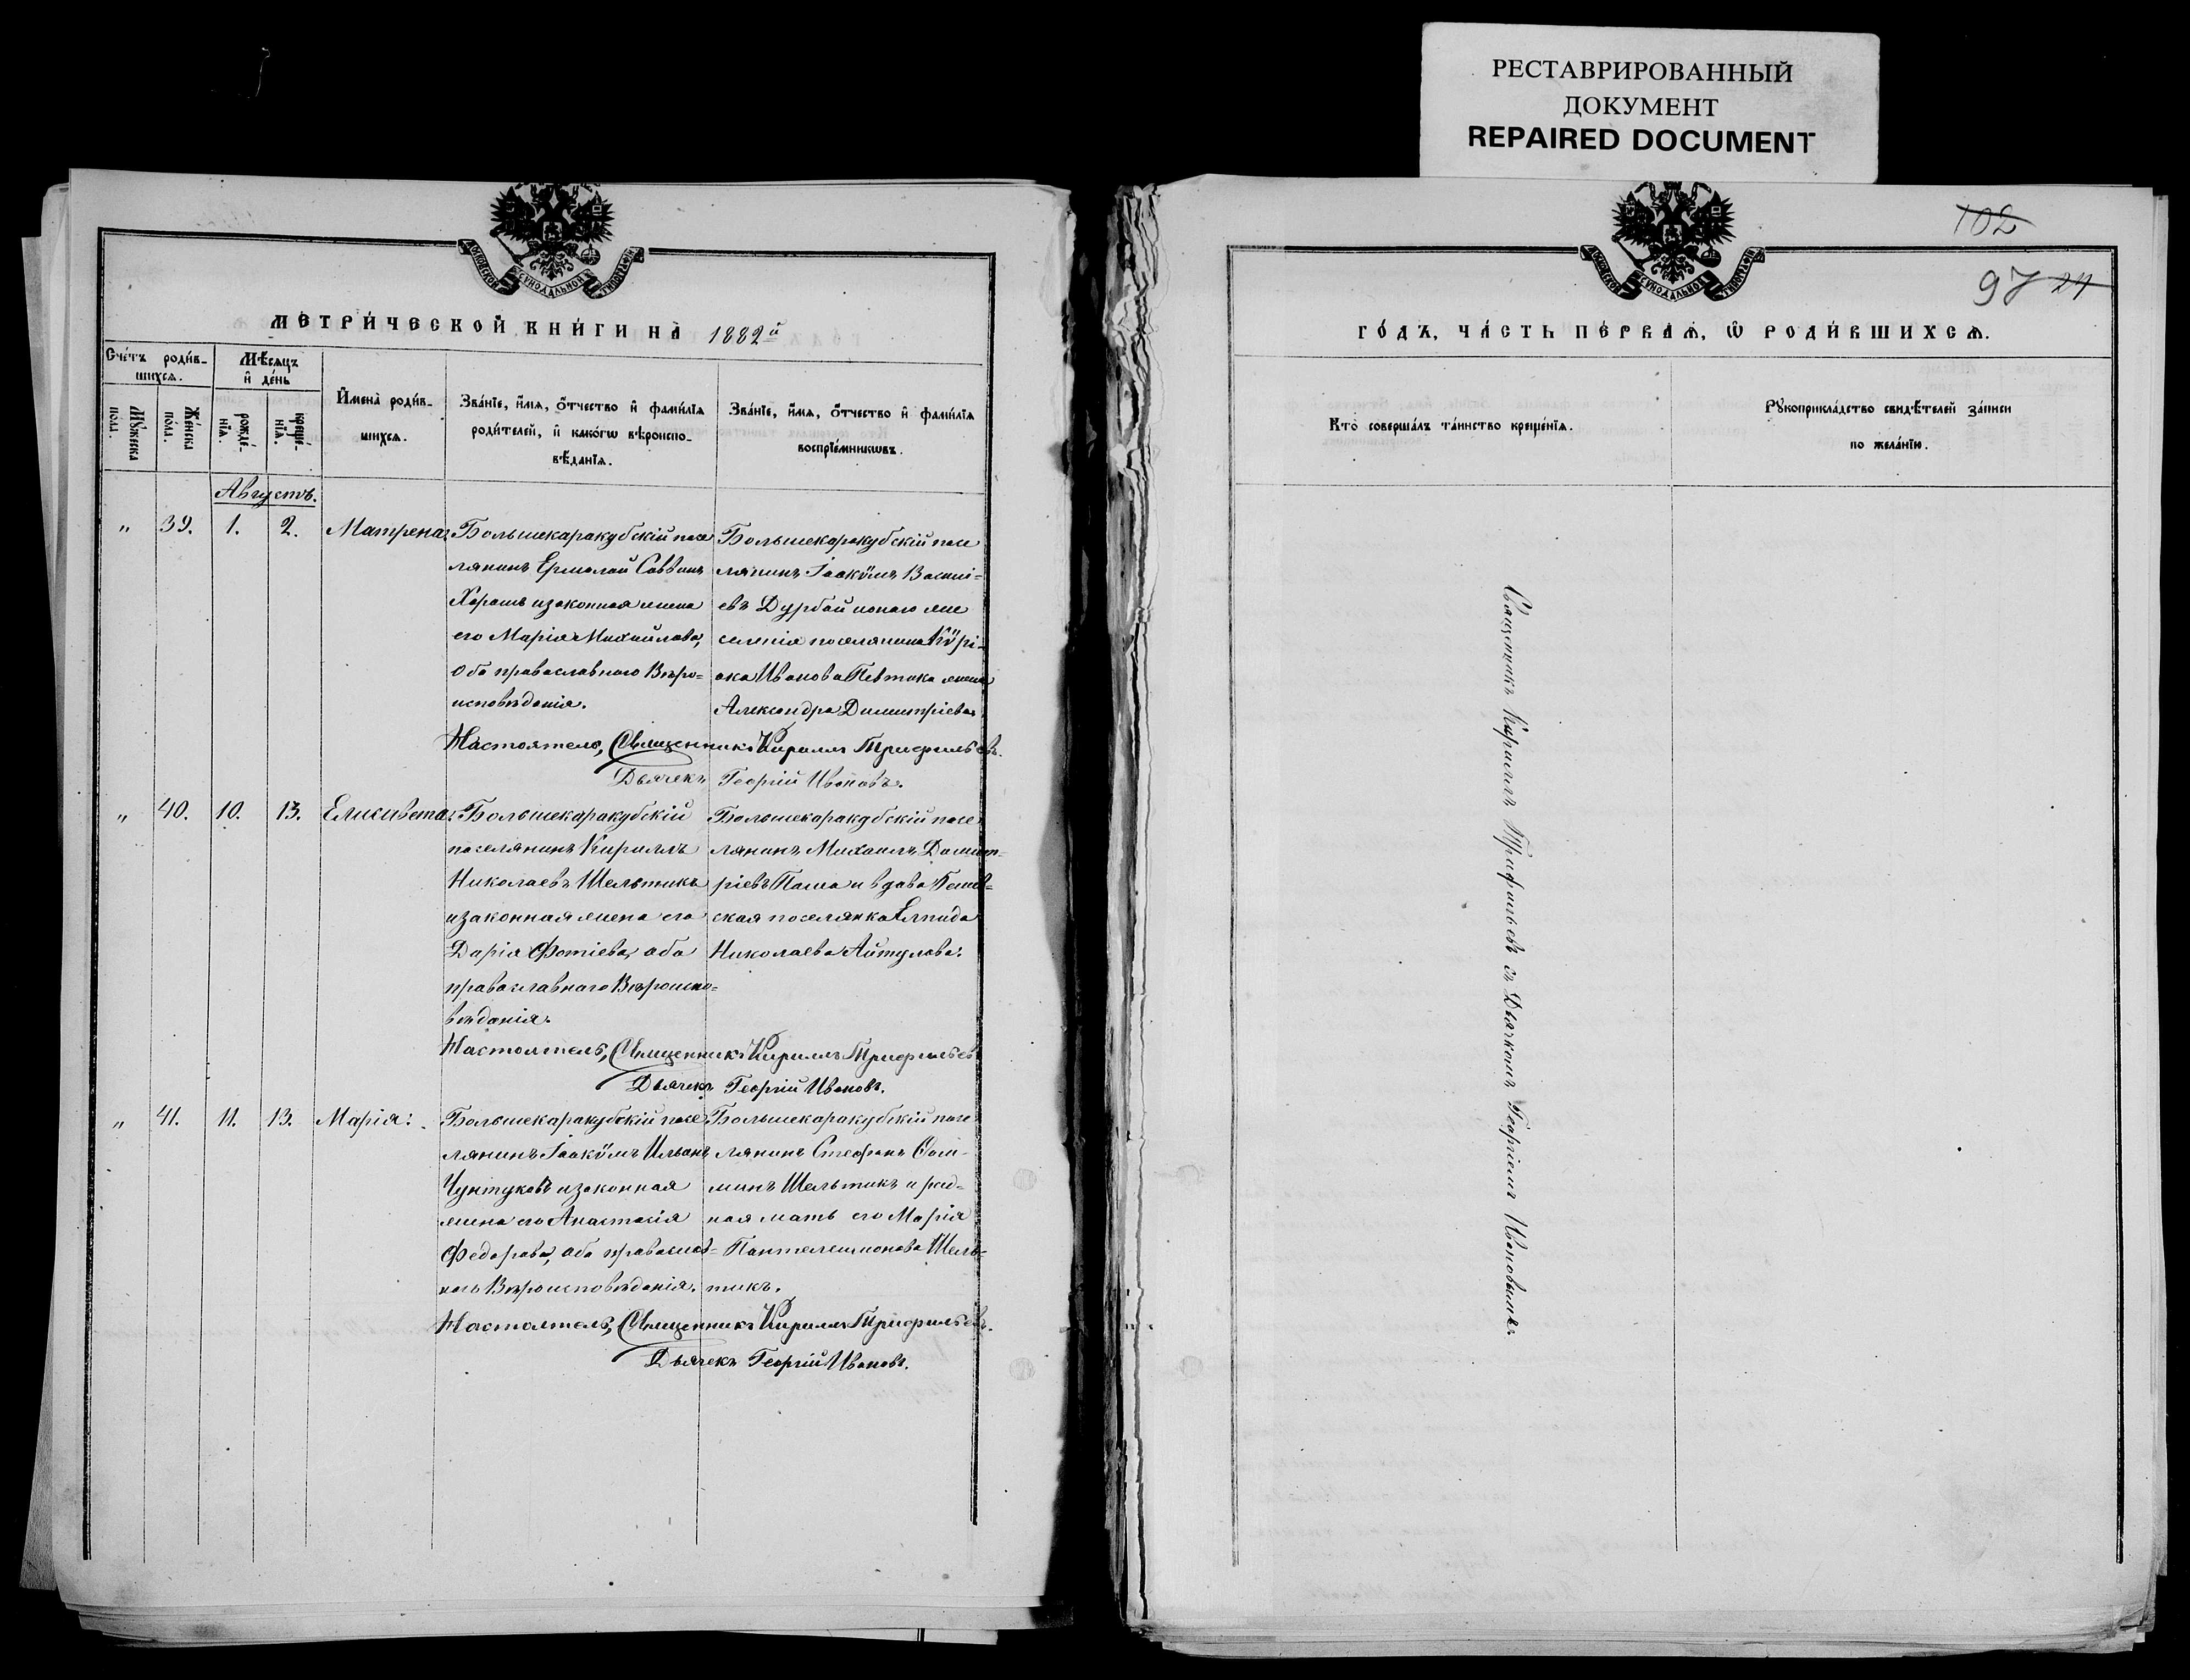 РЕСТАВРИРОВАННЫЙ
ДОКУМЕНТ
REPAIRED DOCUMENT
МОСКОВСКОЙ СѴНОДАЛЬНОЙ ТИПОГРАФІИ
МЕТРИ́ЧЕСКОЙ КНИ́ГИ НА̀ 1882й
Сче́тъ роди́в-
шихсѧ.
Мѣ́сѧцъ
и҆ де́нь
Мꙋ́жеска
по́ла.
Же́нска
по́ла.
рожде́-
нїѧ.
креще́-
нїѧ.
И҆мена̀ роди́в-
шихсѧ.
Зва́нїе, и҆́мѧ, ѻ҆́тчество и҆ фами́лїѧ
роди́телей, и҆ како́гѡ вѣроиспо-
вѣ́данїѧ.
Зва́нїе, и҆́мѧ, ѻ҆́тчество и҆ фами́лїѧ
воспрїе́мникѡвъ.
Августъ.
" 39. 1. 2. Матрена:
Большекаракубскій посе
лянинъ Ермолай Саввинъ
Харашъ изаконная жена
его Марія Михайлова,
оба православнаго Вѣро-
исповѣданія.
Большекаракубскій посе
лянинъ Іоакӱмъ Васили-
евъ Дурбай
селенія поселянина Кӱрі-
ака Иванова жена
Александра Димитріева
Настоятель, Священникъ Кириллъ Трифильевъ.
Дьячекъ Георгій Ивановъ.
" 40. 10. 13. Елисавета:
Большекаракубскій
поселянинъ Кириллъ
Николаевъ Шельтикъ
изаконная жена его
Дарія Фотіева, оба
православнаго Вѣроиспо-
вѣданія.
Большекаракубскій посе
лянинъ Михаилъ Димит-
ріевъ Паша и вдова Бешев-
ская поселянка Елпида
Николаева Айтулова.
Настоятель, Священникъ Кириллъ Трифильевъ
Дьячекъ Георгій Ивановъ.
" 41. 11. 13. Марія:
Большекаракубскій посе
лянинъ Іоакӱмъ
Чунтуковъ изаконная
жена его Анастасія
Федорова, оба православ-
наго Вѣроисповѣданія.
Большекаракубскій посе
лянинъ Стефанъ Ѳом-
минъ Шельтикъ и род-
ная мать его Марія
Пантелеимонова Шель-
тикъ.
Настоятель, Священникъ Кириллъ Трифильевъ.
Дьячекъ Георгій Ивановъ.
МОСКОВСКОЙ СѴНОДАЛЬНОЙ ТИПОГРАФІИ
102
97 24
ГО́ДЪ, ЧА́СТЬ ПЕ́РВАѦ, Ѽ РОДИ́ВШИХСѦ.
Кто̀ соверша́лъ та́инство креще́нїѧ.
Рꙋкоприкла́дство свидѣ́телей за́писи
по жела́нїю.
Священникъ Кириллъ Трифильевъ съ Дьячкомъ Георгіемъ Ивановымъ.